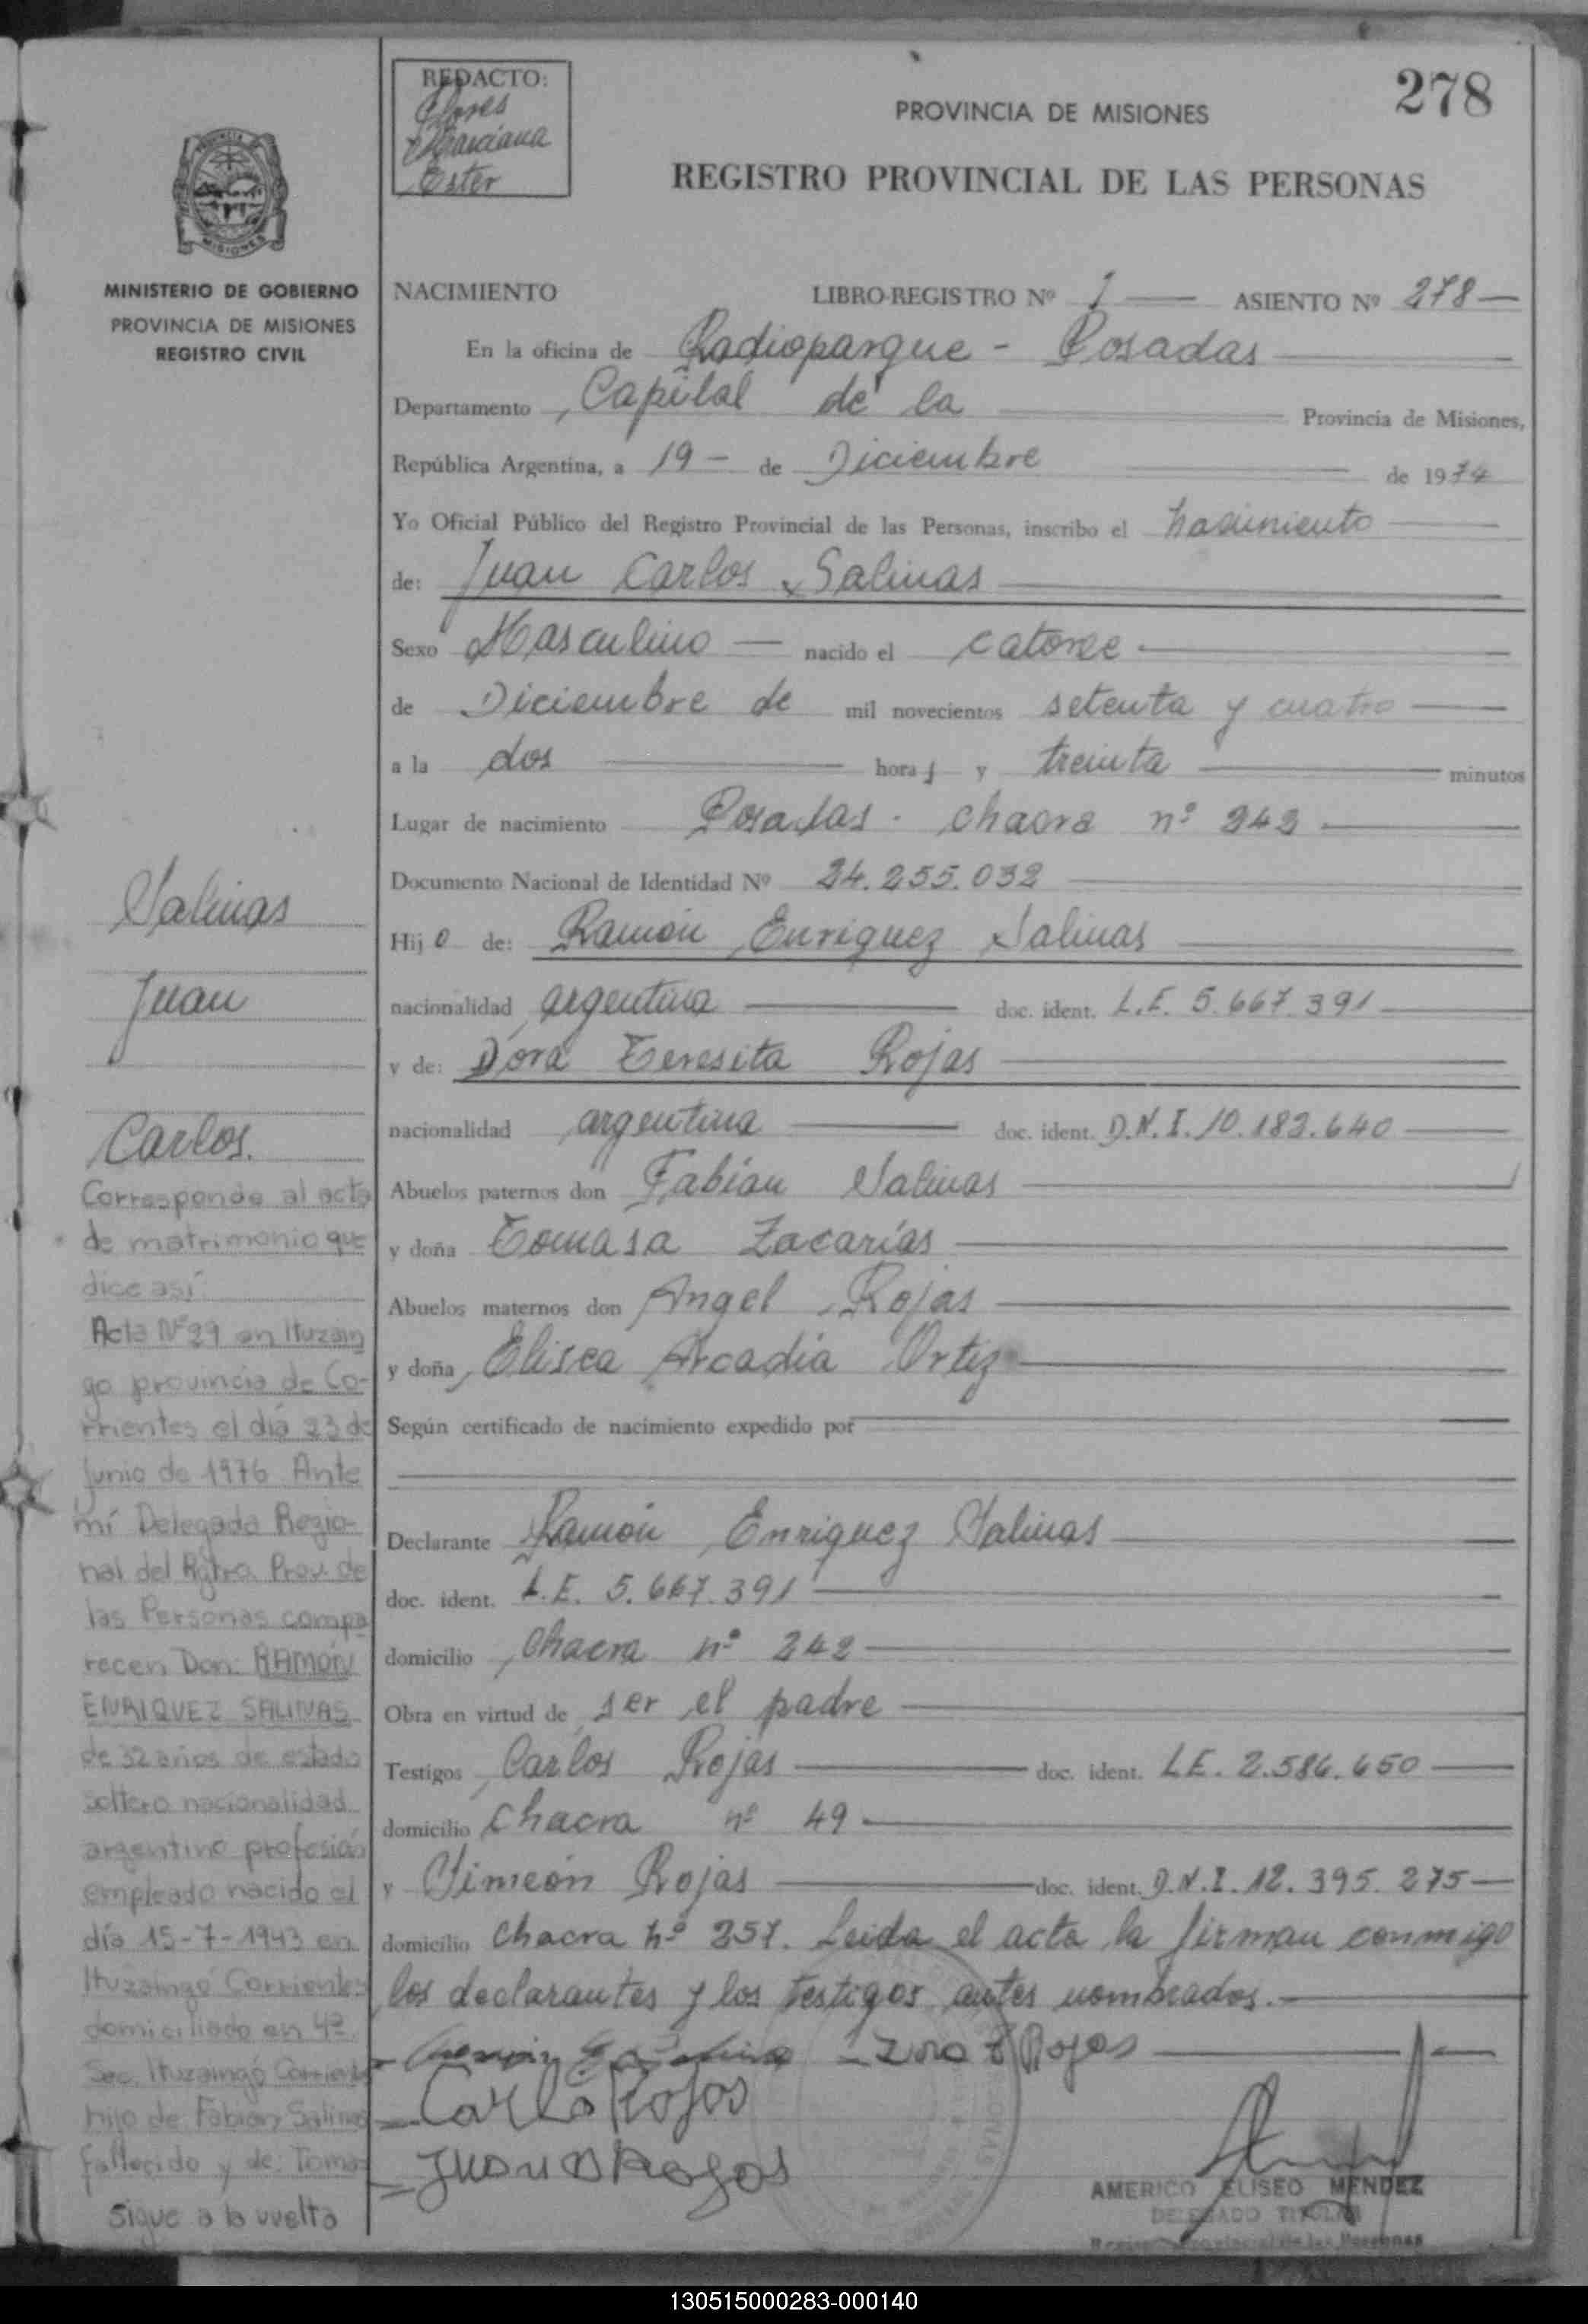 278
REDACTO:
Flores
Marciana
Ester
PROVINCIA DE MISIONES
REGISTRO PROVINCIAL DE LAS PERSONAS
PROVINCIA
MISIONES
MINISTERIO DE GOBIERNO
PROVINCIA DE MISIONES
REGISTRO CIVIL
NACIMIENTO LIBRO-REGISTRO Nº 1 ASIENTO Nº 278
En la oficina de Radioparque - Posadas
Departamento Capital de la Provincia de Misiones,
República Argentina, a 19 - de Diciembre de 1974
Yo Oficial Público del Registro Provincial de las Personas, inscribo el nacimiento
de: Juan Carlos Salinas
Sexo Masculino nacido el catorce
de Diciembre de mil novecientos setenta y cuatro
a la dos hora s y treinta minutos
Lugar de nacimiento Posadas - chacra nº 242
Documento Nacional de Identidad Nº 24.255.032
Hij o de: Ramón Enriquez Salinas
nacionalidad argentina doc. ident. L.E. 5.667.391
y de: Dora Teresita Rojas
nacionalidad argentina doc. ident. D.N.I. 10.182.640
Abuelos paternos don Fabián Salinas
y doña Tomasa Zacarías
Abuelos maternos don Angel Rojas
y doña Elisea Arcadia Ortiz
Según certificado de nacimiento expedido por
Declarante Ramón Enriquez Salinas
doc. ident. L.E. 5.667.391
domicilio Chacra nº 242
Obra en virtud de ser el padre
Testigos Carlos Rojas doc. ident. L.E. 2.586.650
domicilio Chacra nº 49
y Simeón Rojas doc. ident. D.N.I. 12.395.275
domicilio Chacra nº 257. Leida el acta la firman conmigo
los declarantes y los testigos antes nombrados.
Dora T Rojas
Carlo Rojas
Rojas
AMERICO ELISEO MENDEZ
DELEGADO TITULAR
Registro Provincial de las Personas
Salinas
Juan
Carlos.
Corresponde al acta
de matrimonio que
dice así:
Acta Nº 29 en Ituzain
go provincia de Co-
rrientes el día 23 de
junio de 1976 Ante
mí Delegada Regio-
nal del Rgtro. Prov. de
las Personas compa
recen Don: RAMÓN
ENRIQUEZ SALINAS
de 32 años de estado
soltero nacionalidad
argentino profesión
empleado nacido el
día 15-7-1943 en
Ituzaingó Corrientes
domiciliado en 4ª
Sec. Ituzaingó Corriente
hijo de: Fabian Salinas
fallecido y de: Toma-
Sigue a la vuelta
130515000283-000140